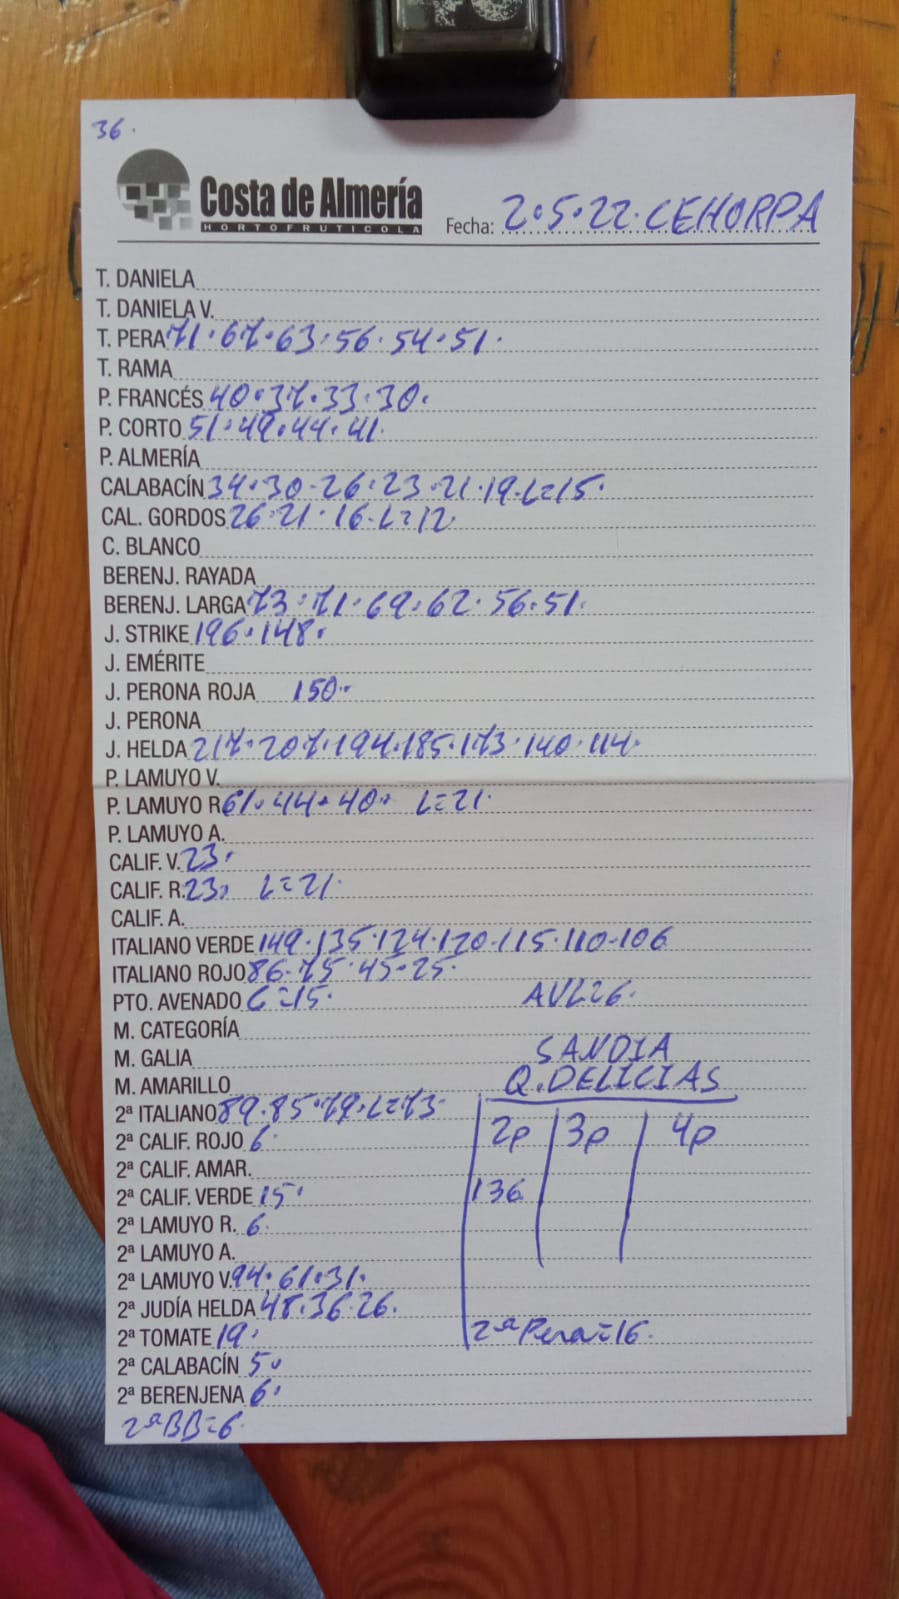 36.
Costa de Almería
HORTOFRUTICOLA
Fecha: 2.5.22. CEHORPA
T. DANIELA
T. DANIELA V.
T. PERA 71.67.63.56.54.51.
T. RAMA
P. FRANCÉS 40.37.33.30.
P. CORTO 51.49.44.41.
P. ALMERÍA
CALABACÍN 34.30-26.23.21.19.L=15.
CAL. GORDOS 26.21.16.L=12.
C. BLANCO
BERENJ. RAYADA
BERENJ. LARGA 73.71.69.62.56.51.
J. STRIKE 196.148.
J. EMÉRITE
J. PERONA ROJA 150.
J. PERONA
J. HELDA 217.207.194.185.173.140.114.
P. LAMUYO V.
P. LAMUYO R 61.44.40. L=21.
P. LAMUYO A.
CALIF. V. 23.
CALIF. R. 23, L=21.
CALIF. A.
ITALIANO VERDE 149.135.124.120.115.110-106
ITALIANO ROJO 86-75.45.25.
PTO. AVENADO C=15. AVL=6.
M. CATEGORÍA
M. GALIA SANDIA
M. AMARILLO Q.DELICIAS
2ª ITALIANO 89.85.79.L=73
2ª CALIF. ROJO 6. 2p 3p 4p
2ª CALIF. AMAR.
2ª CALIF. VERDE 15. 136
2ª LAMUYO R. 6.
2ª LAMUYO A.
2ª LAMUYO V. 94.61.31.
2ª JUDÍA HELDA 48.36.26.
2ª TOMATE 19. 2ª Pera=16.
2ª CALABACÍN 5.
2ª BERENJENA 6.
2ª BB=6.